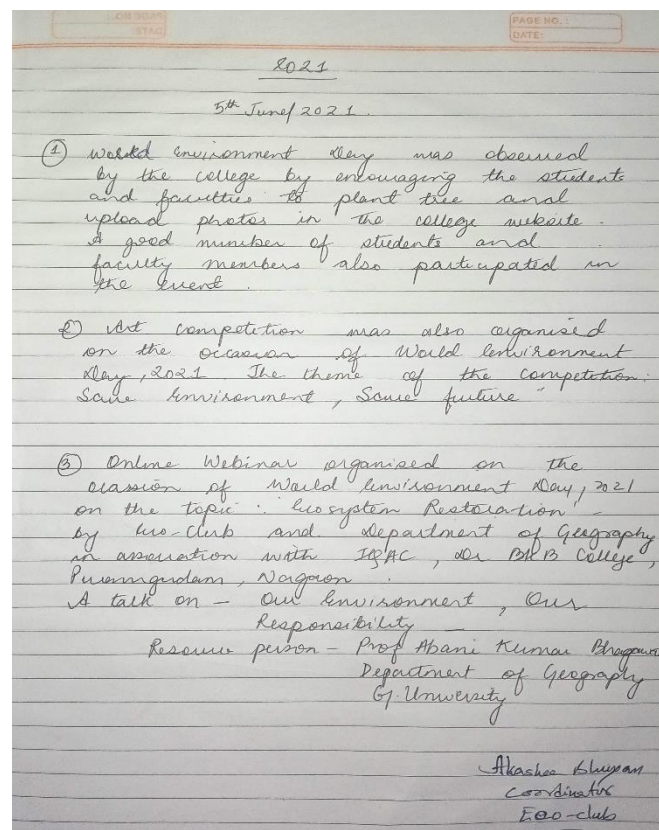 PAGE NO.:
DATE:
2021
5th June/2021.
① World Environment Day was observed
by the college by encouraging the students
and faculties to plant tree and
upload photos in the college website.
A good number of students and
faculty members also participated in
the event.
2) Art competition was also organised
on the occasion of World Environment
Day, 2021. The theme of the competition:
Save Environment, Save future"
③ Online Webinar organised on the
ocassion of World Environment Day, 2021
on the topic: Ecosystem Restoration' -
by Eco-Club and Department of Geography
in association with IQAC, Dr BKB College,
Puranigudam, Nagaon.
A talk on - Our Environment, Our
Responsibility -
Resource person - Prof Abani Kumar Bhagawati
Department of Geography
G. University
Akashee Bhuyan
Coordinator
Eco-club